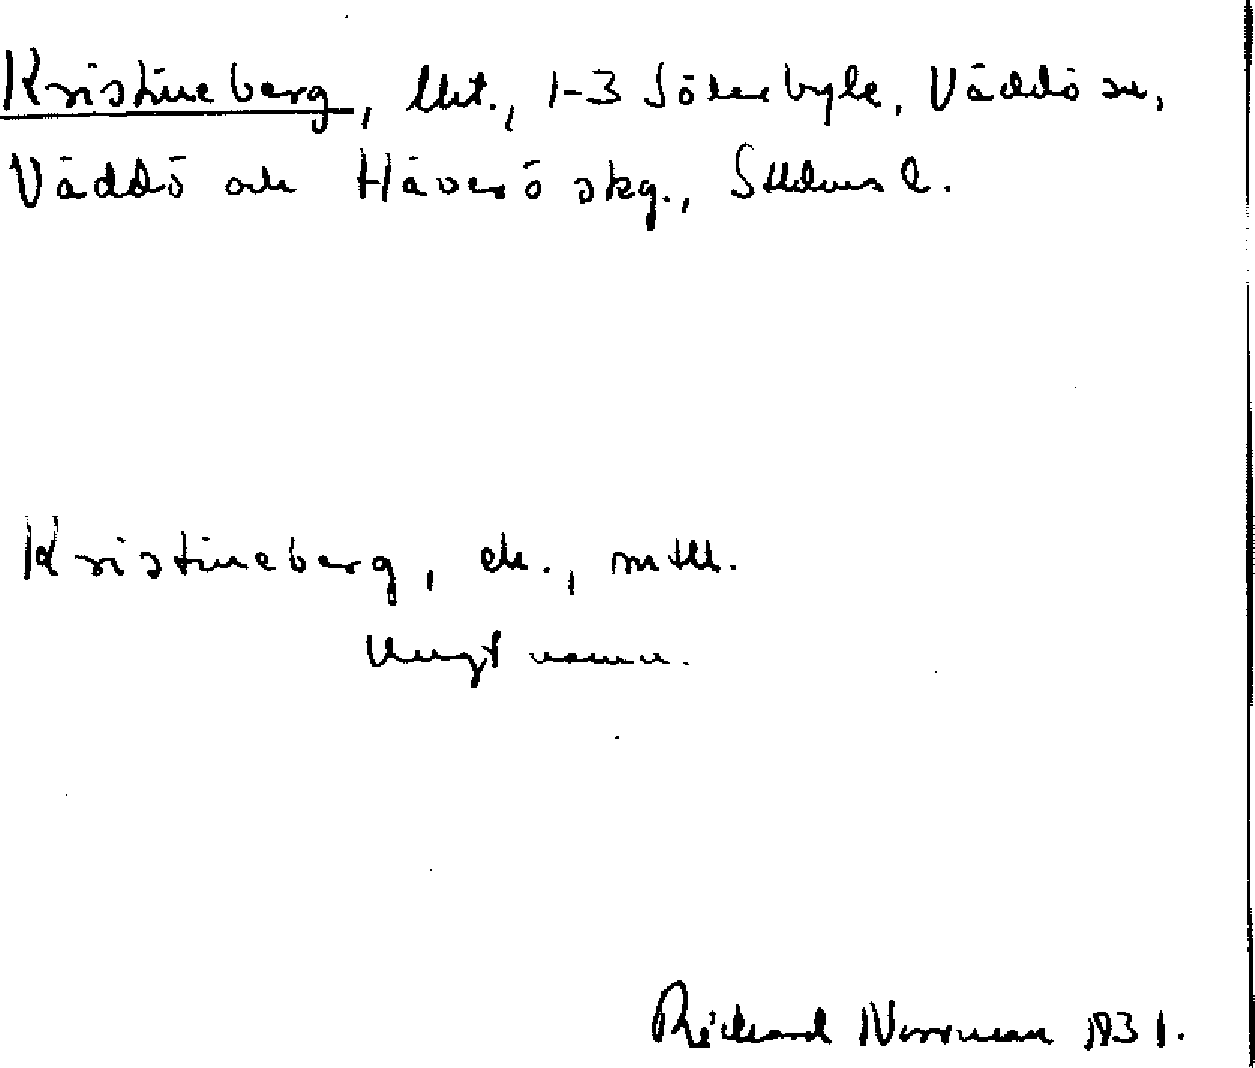 Kristineberg, lht., 1-3 Söderbyle, Väddö sn,
Väddö och Häverö skg., Sthlms l.
Kristineberg, ek., mtll.
Ungt namn.
Rickard Norrman 1931.